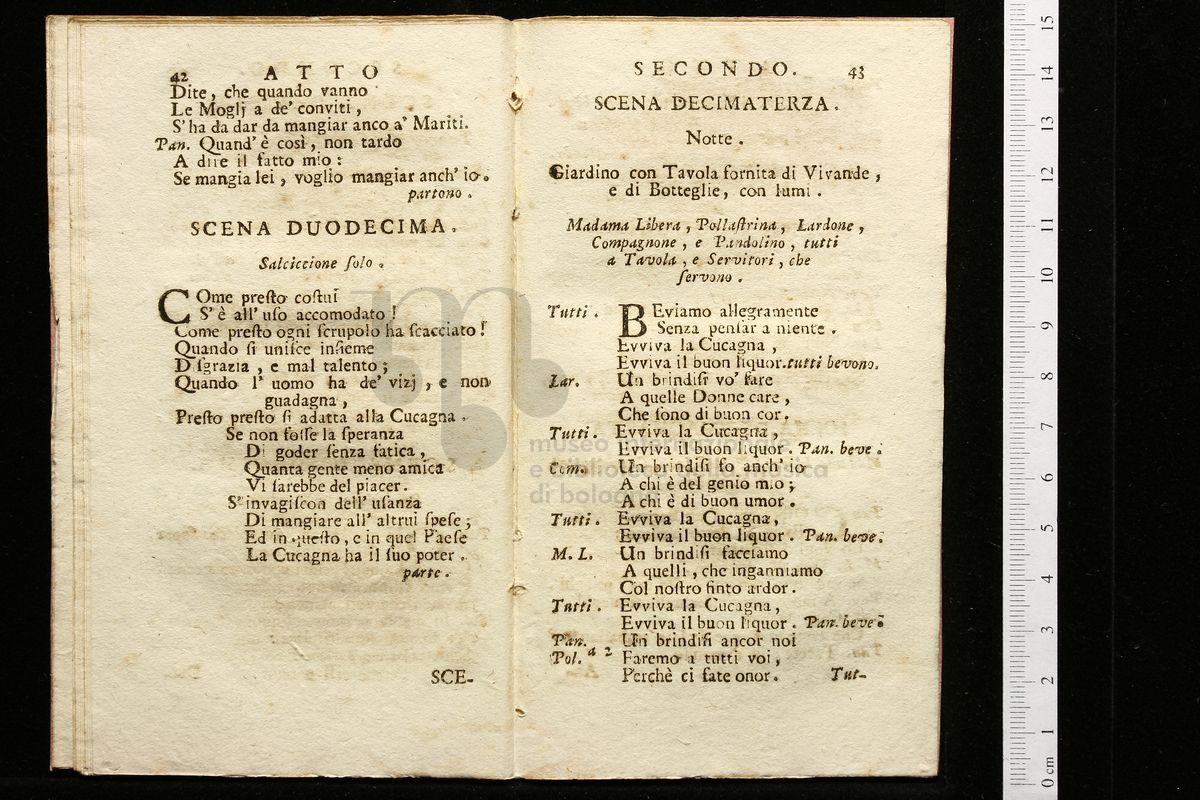 42 ATTO
Dite, che quando vanno
Le Moglj a de' conviti,
S'ha da dar da mangiar anco a' Mariti.
Pan. Quand' è così, non tardo
A dire il fatto mio:
Se mangia lei, voglio mangiar anch' io.
partono.
SCENA DUODECIMA.
Salciccione ſolo.
COme preſto coſtui
S' è all' uſo accomodato!
Come preſto ogni ſcrupolo ha ſcacciato!
Quando ſi uniſce inſieme
Diſgrazia, e mal talento;
Quando l' uomo ha de' vizj, e non
guadagna,
Preſto preſto ſi adatta alla Cucagna.
Se non foſſe la ſperanza
Di goder ſenza fatica,
Quanta gente meno amica
Vi ſarebbe del piacer.
S' invagiſcon dell' uſanza
Di mangiare all' altrui ſpeſe;
Ed in queſto, e in quel Paeſe
La Cucagna ha il ſuo poter.
parte.
SCE-
SECONDO. 43
SCENA DECIMATERZA.
Notte.
Giardino con Tavola fornita di Vivande,
e di Botteglie, con lumi.
Madama Libera, Pollaſtrina, Lardone,
Compagnone, e Pandolino, tutti
a Tavola, e Servitori, che
ſervono.
Tutti. BEviamo allegramente
Senza penſar a niente.
Evviva la Cucagna,
Evviva il buon liquor. tutti bevono.
Lar. Un brindiſi vo' fare
A quelle Donne care,
Che ſono di buon cor.
Tutti. Evviva la Cucagna,
Evviva il buon liquor. Pan. beve.
Com. Un brindiſi fo anch' io
A chi è del genio mio;
A chi è di buon umor.
Tutti. Evviva la Cucagna,
Evviva il buon liquor. Pan. beve.
M. L. Un brindiſi facciamo
A quelli, che inganniamo
Col noſtro finto ardor.
Tutti. Evviva la Cucagna,
Evviva il buon liquor. Pan. beve.
Pan. Un brindiſi ancor noi
Pol. a 2 Faremo a tutti voi,
Perchè ci fate onor. Tut-
museo internazionale
e biblioteca della musica
di bologna
0 cm 1 2 3 4 5 6 7 8 9 10 11 12 13 14 15